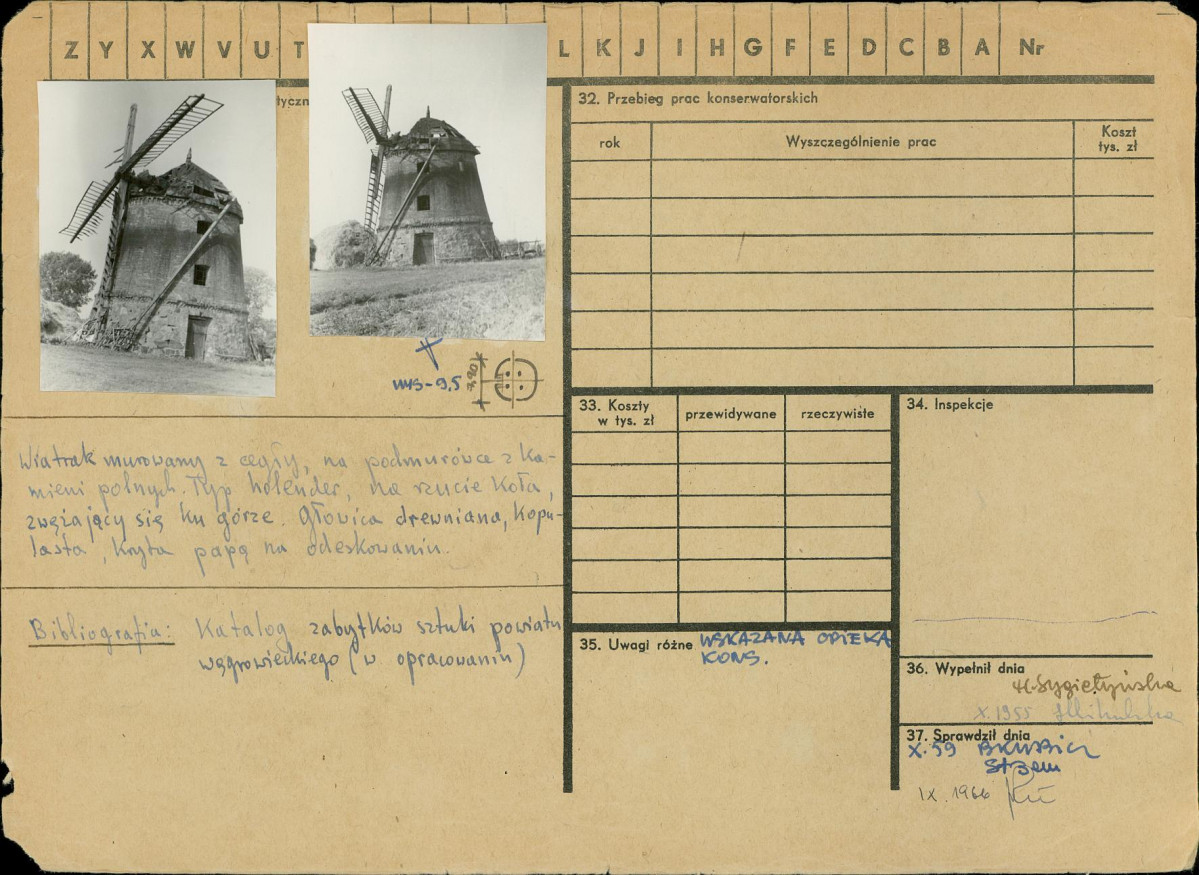 Z Y X W V U T L K J I H G F E D C B A Nr
tyczn
wys-9.5
7,90
Wiatrak murowany z cegły, na podmurówce z ka-
mieni polnych. Typ holender, na rzucie koła,
zwężający się ku górze. Głowica drewniana, kopu-
lasta, kryta papą na odeskowaniu.
Bibliografia: Katalog zabytków sztuki powiatu
wągrowieckiego (w opracowaniu)
32. Przebieg prac konserwatorskich
rok Wyszczególnienie prac Koszt
tys. zł
33. Koszty
w tys. zł przewidywane rzeczywiste
34. Inspekcje
35. Uwagi różne WSKAZANA OPIEKA
KONS.
36. Wypełnił dnia
H. Sygietyńska
X.1955
37. Sprawdził dnia
X.59
IX.1966